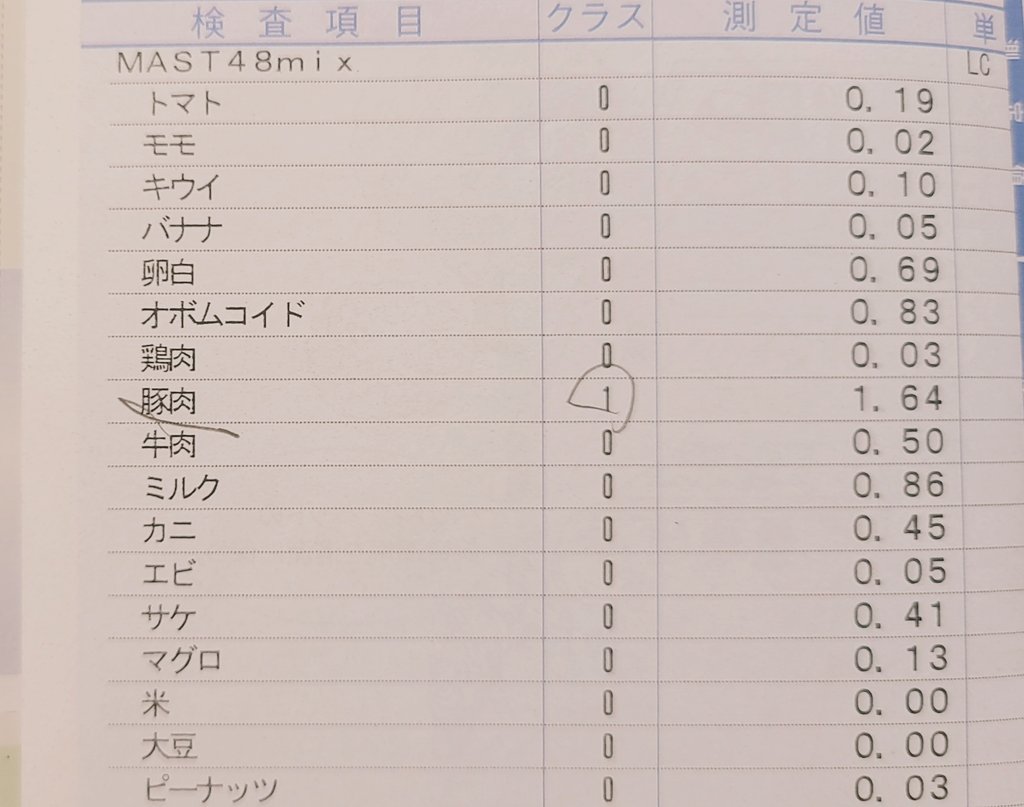 検査項目 クラス 測定値 単
MAST48mix LC
トマト 0 0.19
モモ 0 0.02
キウイ 0 0.10
バナナ 0 0.05
卵白 0 0.69
オボムコイド 0 0.83
鶏肉 0 0.03
豚肉 1 1.64
牛肉 0 0.50
ミルク 0 0.86
カニ 0 0.45
エビ 0 0.05
サケ 0 0.41
マグロ 0 0.13
米 0 0.00
大豆 0 0.00
ピーナッツ 0 0.03